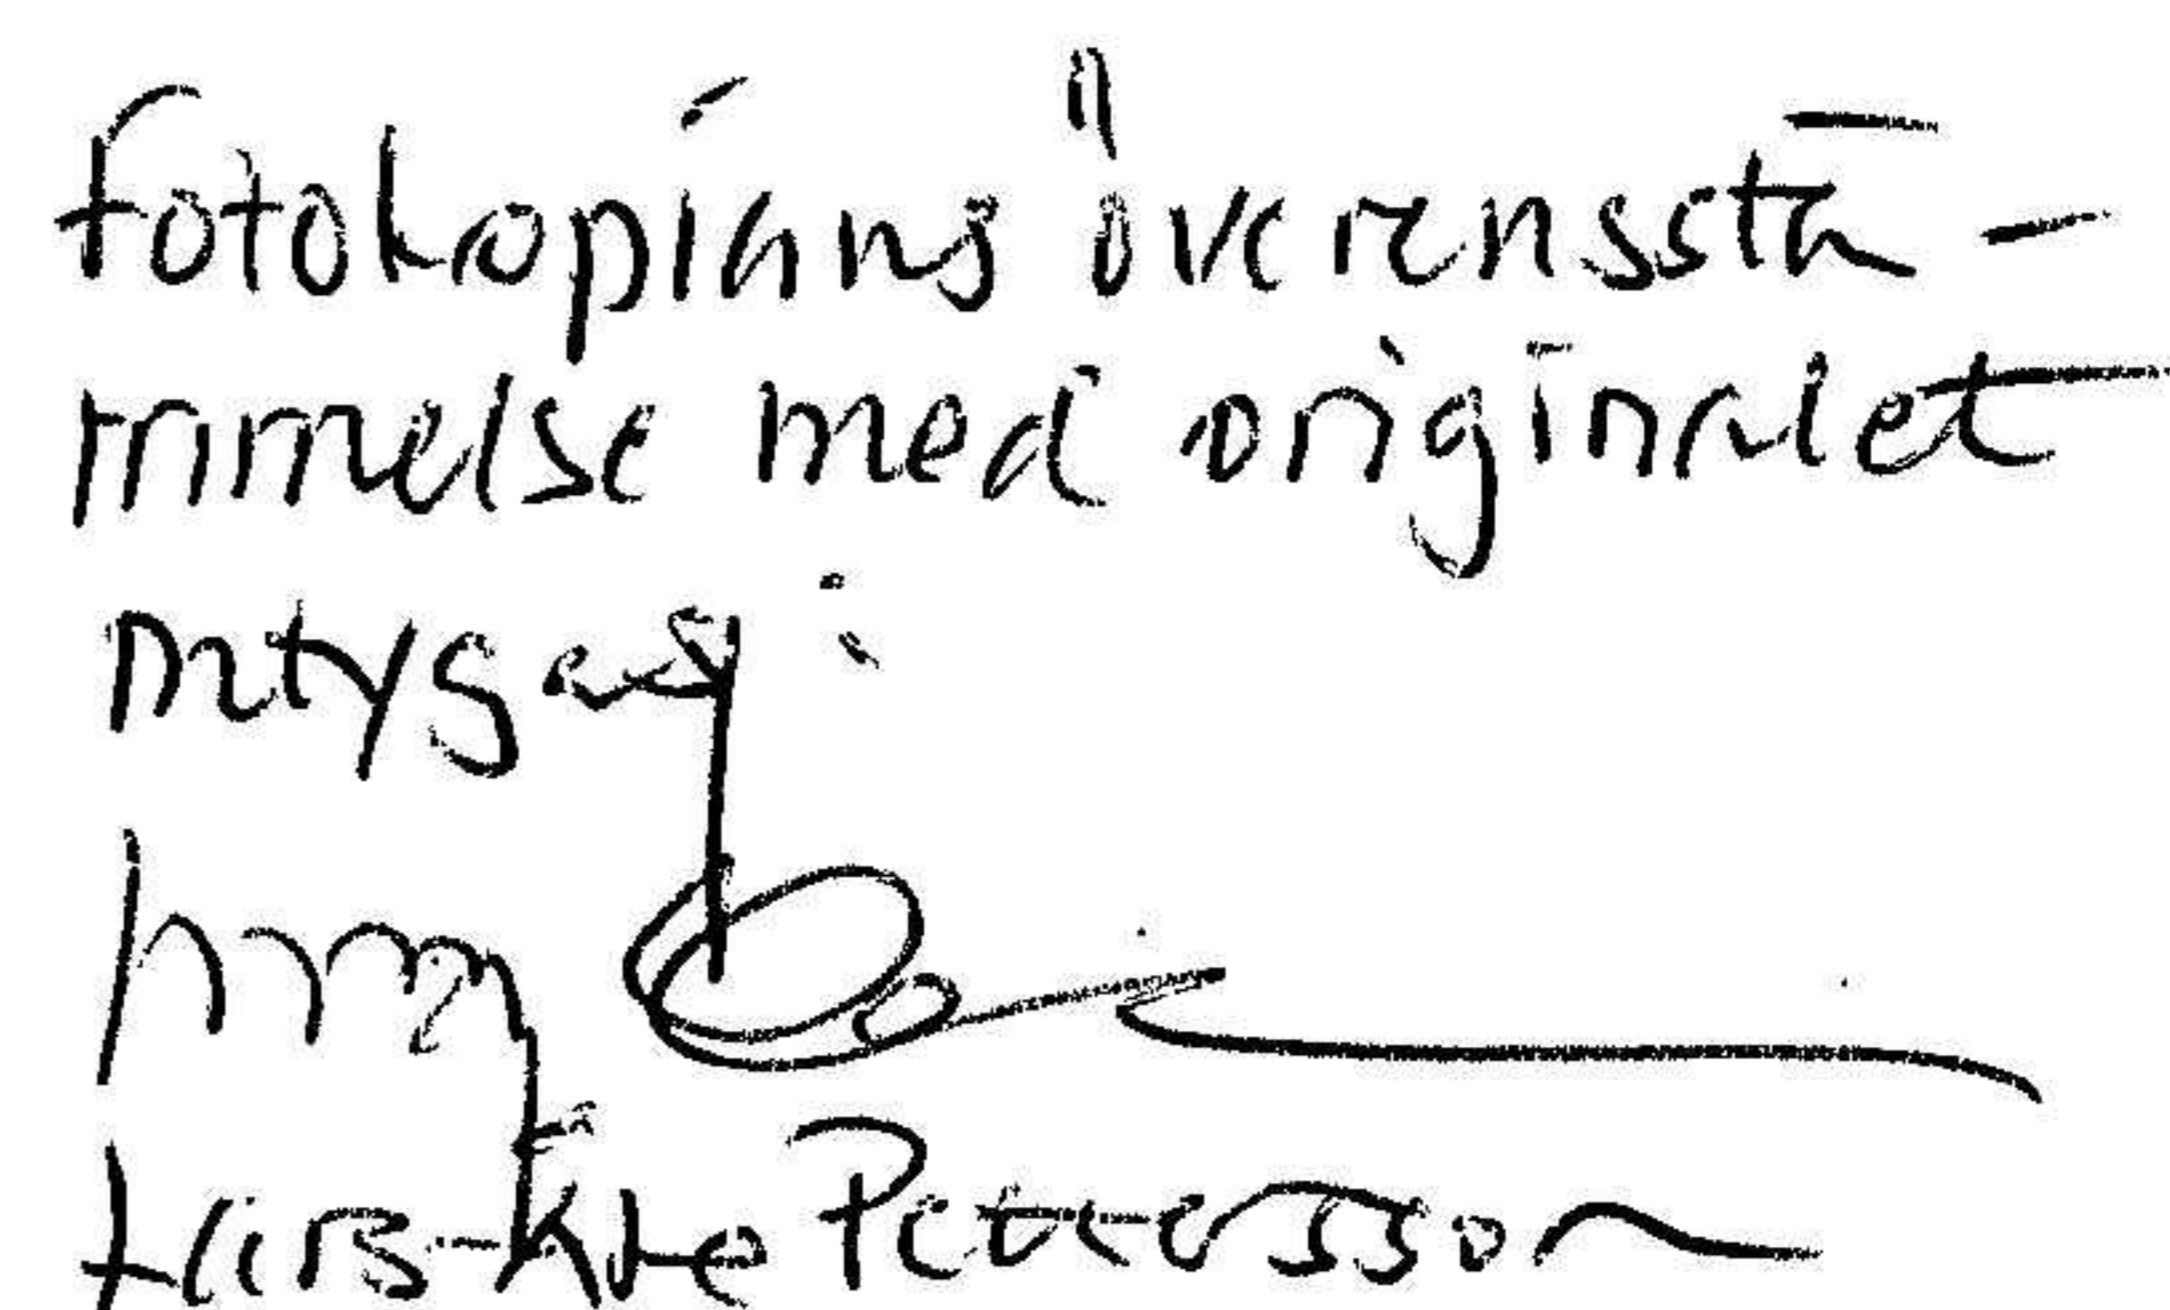 Fotokopians överensstä-
mmelse med originalet
intygas:
Lars-Åke Petersson